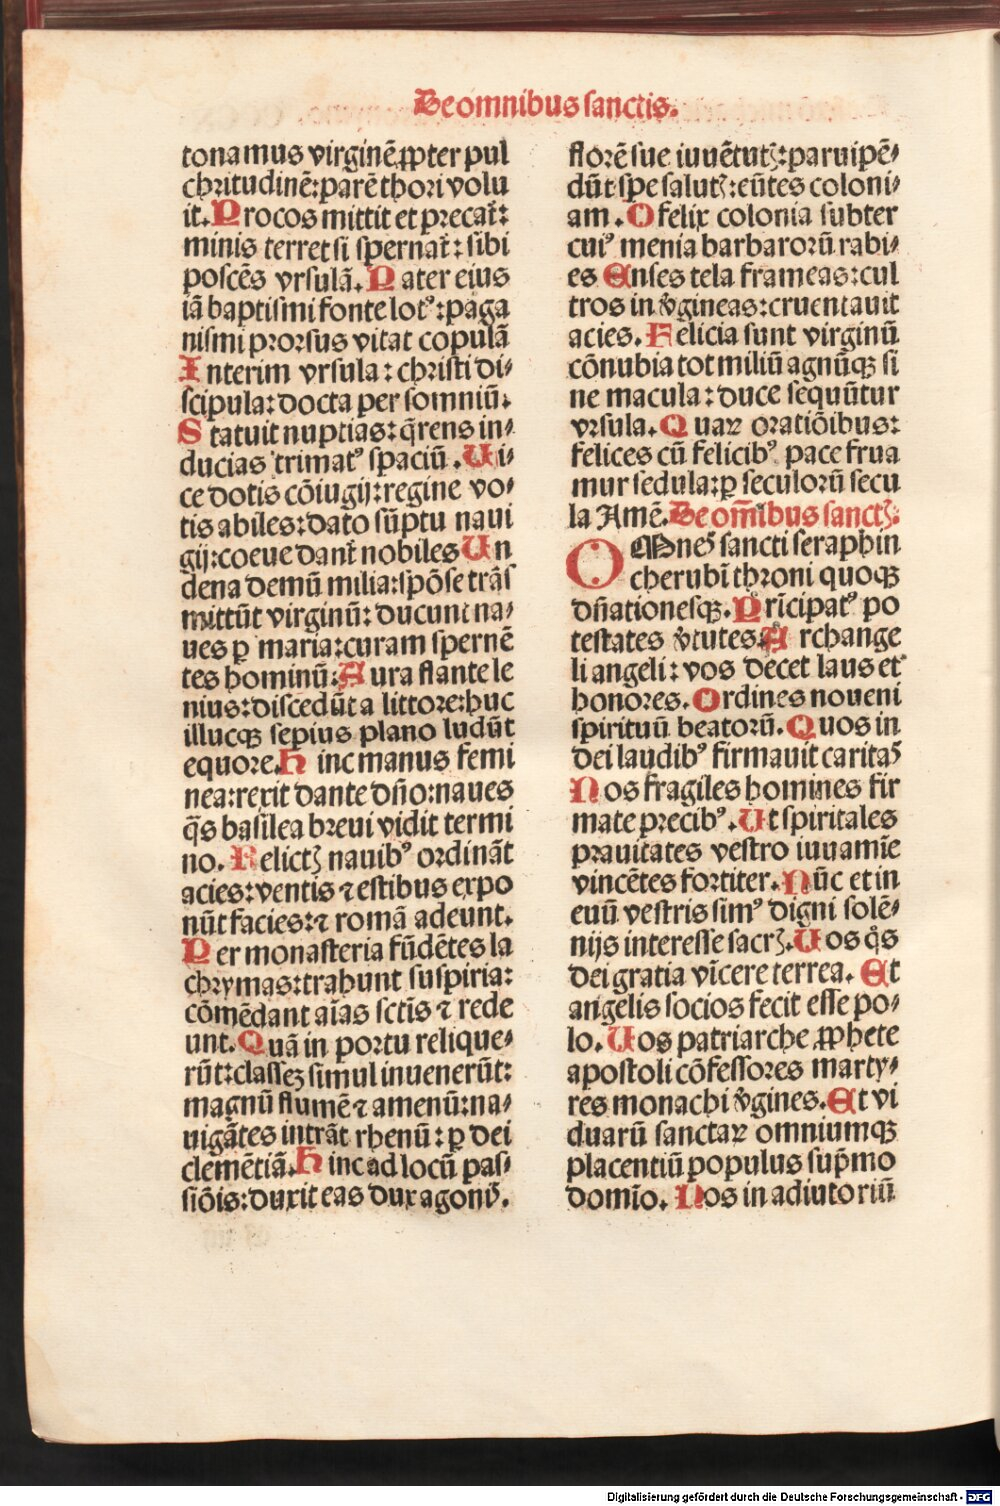 De omnibus sanctis.
tonamus virginē ꝓpter pul
chritudinē: parē thori volu
it. Procos mittit et precat᷑:
minis terret si spernat᷑: sibi
poscēs vrsulā. Pater eius
iā baptismi fonte lotꝰ: paga
nismi prorsus vitat copulā
Interim vrsula: christi di⸗
scipula: docta per somniū.
Statuit nuptias: q̄rens in⸗
ducias trimatꝰ spaciū. Ui⸗
ce dotis cōiugij: regine vo⸗
tis abiles: dato sūptu naui
gij: coeue dant᷑ nobiles Un
dena demū milia: spōse trās
mittūt virginū: ducunt na⸗
ues ꝑ maria: curam spernē
tes hominū: Aura flante le
nius: discedūt a littore: huc
illucqꝫ sepius plano ludūt
equore. Hinc manus femi
nea: rexit dante dn̄o: naues
q̄s basilea breui vidit termi
no. Relictꝭ nauibꝰ ordināt
acies: ventis ⁊ estibus expo
nūt facies: ⁊ romā adeunt.
Per monasteria fūdētes la
chrymas: trahunt suspiria:
cōmēdant aīas sctīs ⁊ rede
unt. Quā in portu relique⸗
rūt: classeꝫ simul inuenerūt:
magnū flumē ⁊ amenū: na⸗
uigātes intrāt rhenū: ꝑ dei
clemētiā. Hinc ad locū pas⸗
siōis: duxit eas dux agonꝭ.
florē sue iuuētutꝭ: paruipē⸗
dūt spe salutꝭ: eūtes coloni⸗
am. O felix colonia subter
cuiꝰ menia barbarorū rabi⸗
es Enses tela frameas: cul
tros in v̄gineas: cruentauit
acies. Felicia sunt virginū
cōnubia tot miliū agnūqꝫ si
ne macula: duce sequūtur
vrsula. Quaꝝ oratiōibus:
felices cū felicibꝰ pace frua
mur sedula: ꝑ seculorū secu
la Amē. De om̄ibus sanctꝭ.
OMnes sancti seraphin
cherubī throni quoqꝫ
dn̄ationesqꝫ. Prīcipatꝰ po
testates v̄tutes. Archange
li angeli: vos decet laus et
honores. Ordines noueni
spirituū beatorū. Quos in
dei laudibꝰ firmauit caritas
Nos fragiles homines fir
mate precibꝰ. Ut spiritales
prauitates vestro iuuamīe
vincētes fortiter. Nūc et in
euū vestris simꝰ digni solē⸗
nijs interesse sacrꝭ. Uos q̄s
dei gratia vīcere terrea. Et
angelis socios fecit esse po⸗
lo. Uos patriarche ꝓphete
apostoli cōfessores marty⸗
res monachi v̄gines. Et vi
duarū sanctaꝝ omniumqꝫ
placentiū populus sup̄mo
domīo. Nos in adiutoriū
Digitalisierung gefördert durch die Deutsche Forschungsgemeinschaft - DFG